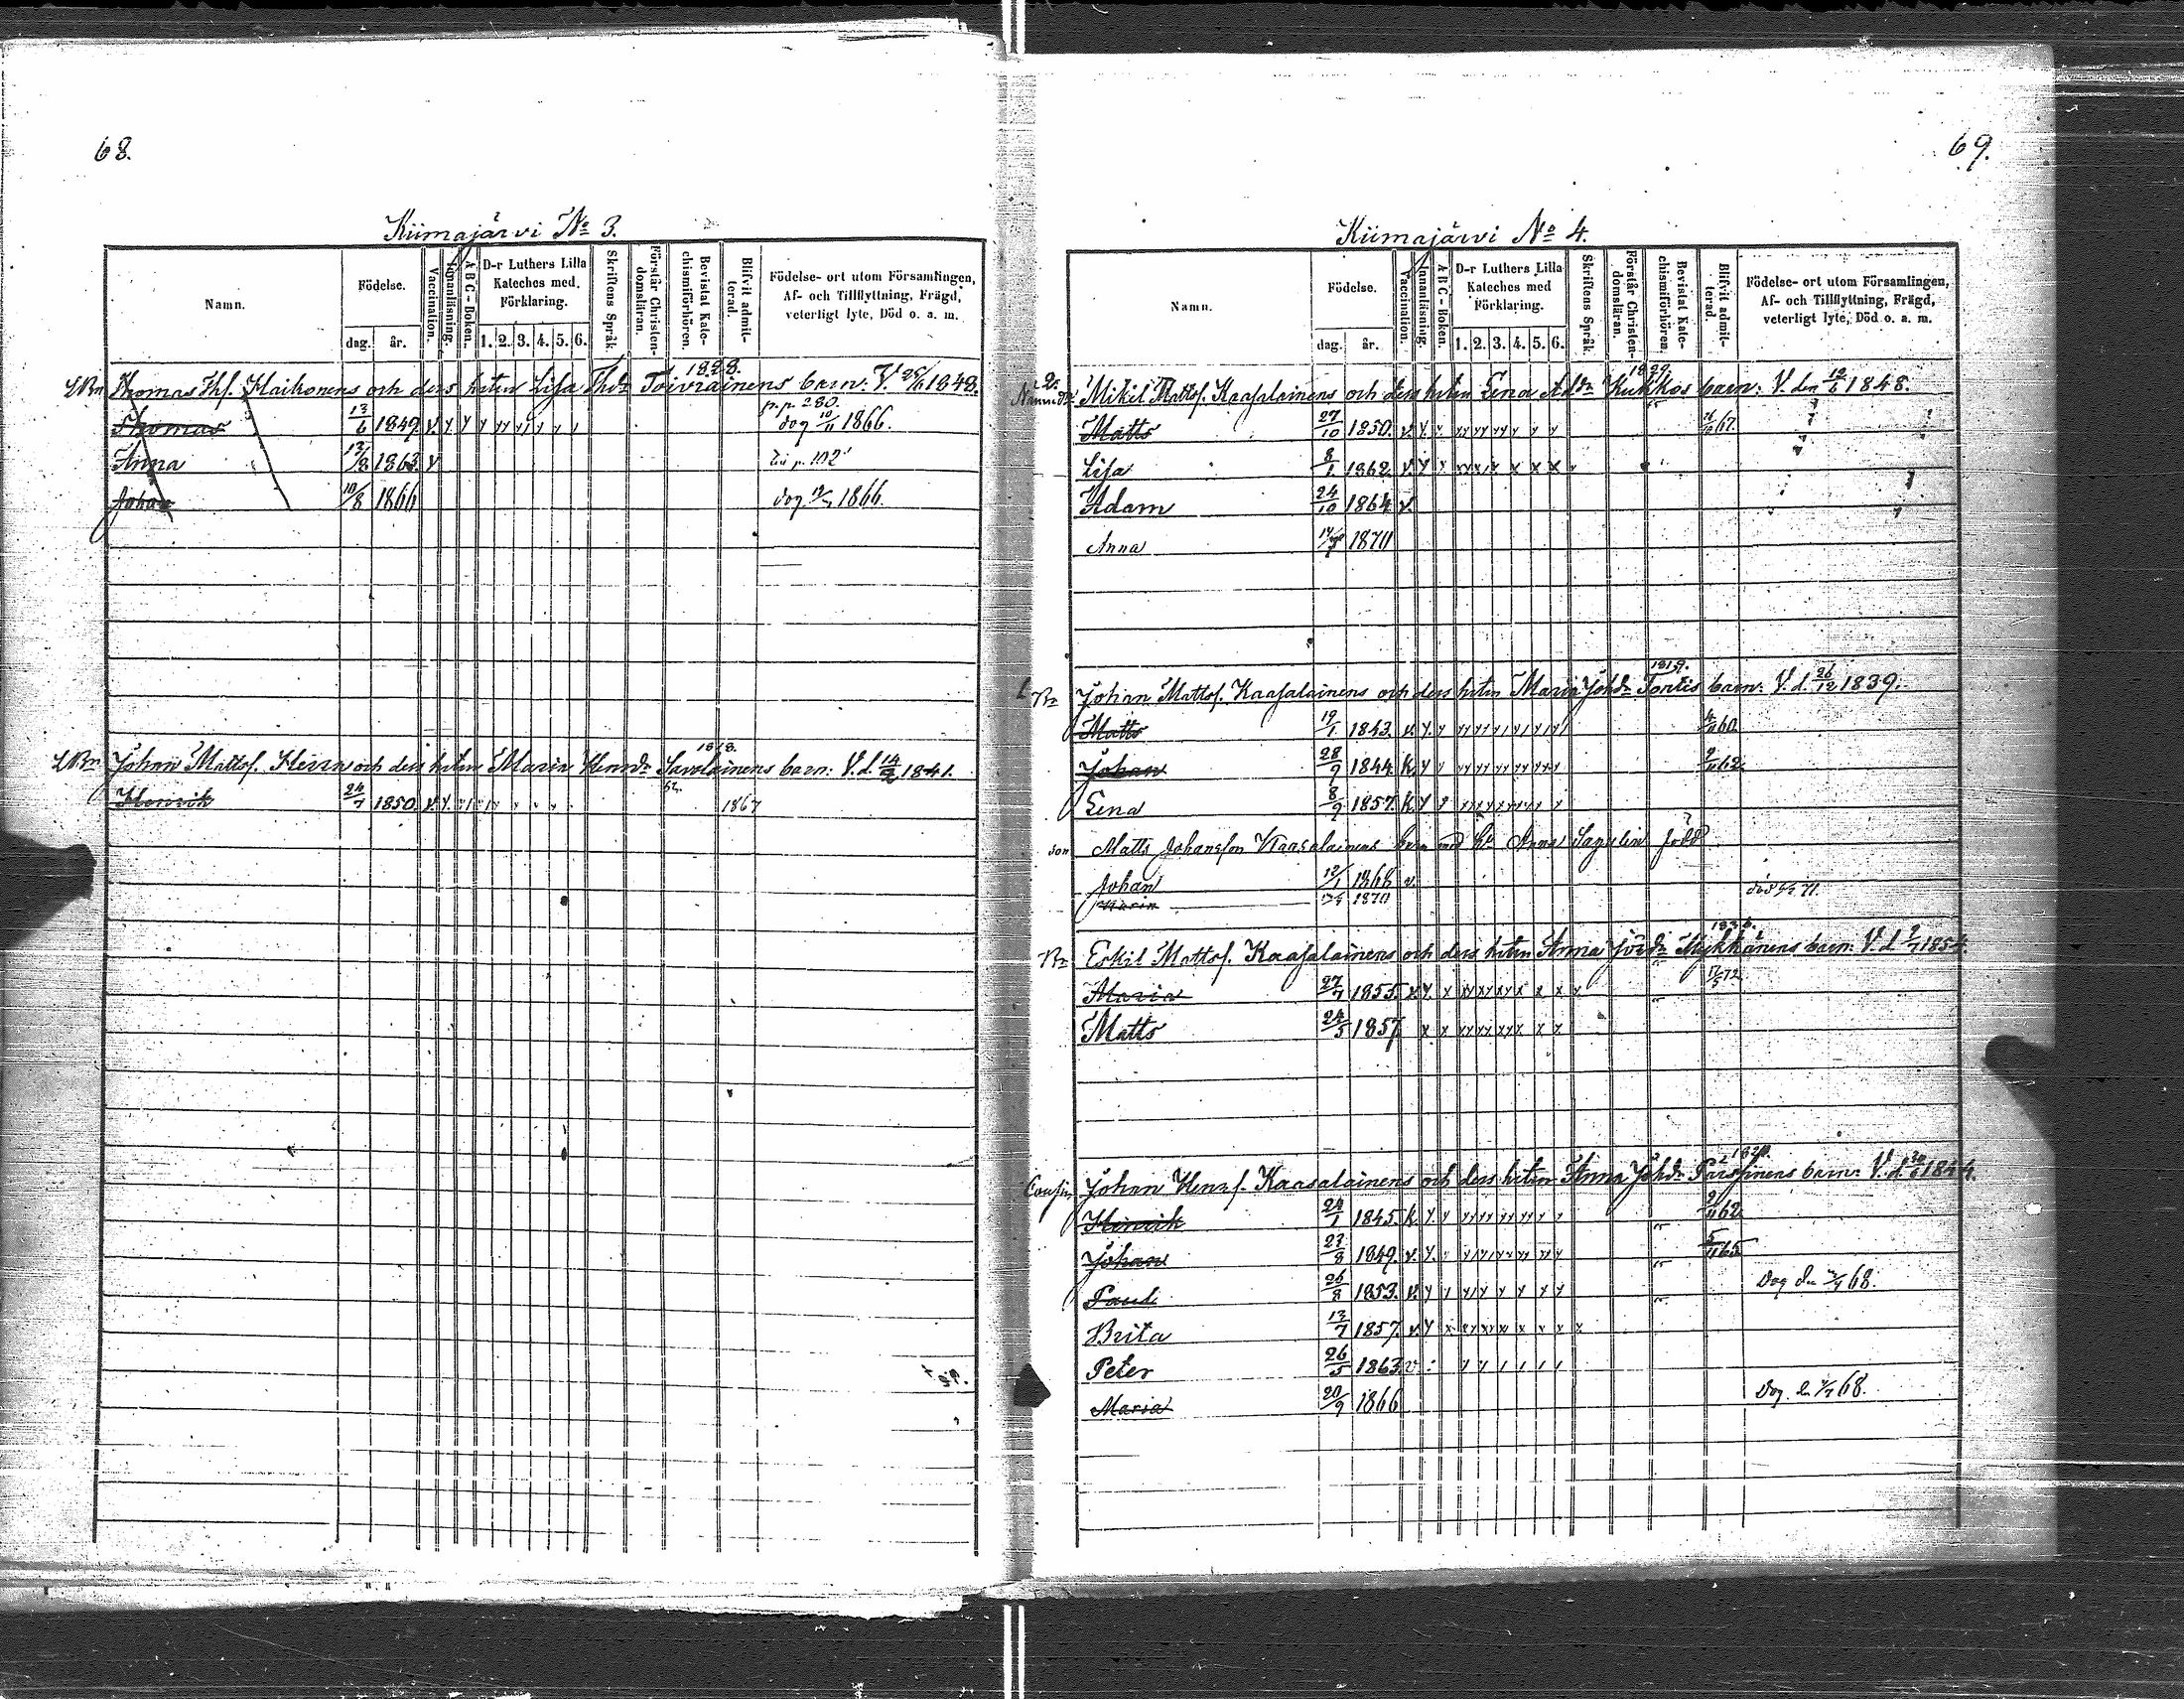 68.
Kiimajärvi No 3.
Namn.
Födelse.
dag.
år.
Vaccination.
Innanläsning.
A B C - Boken.
D-r Luthers Lilla
Kateches med
Förklaring.
1. 2. 3. 4. 5. 6.
Skriftens Språk.
Förstår Christen-
domsläran.
Bevistat Kate-
chismiförhören.
Blifvit admit-
terad.
Födelse- ort utom Församlingen,
Af- och Tillflyttning, Frägd,
veterligt lyte, Död o. a. m.
1828.
Thomas Thf. Kaikonens och dess hustru Lisa Toivrainens barn: V. 1848.
p.p. 280.
Thomas 13/6 1849. dog 10/11 1866.
Anna 13/8 1863. v p. 102
Johan 10/8 1866 dog 1866.
1818.
Johan Mattsf. Hirvi och dess hustru Maria Henrdr Savolainens barn: V. d. 1841.
Henrik 24/7 1850. 1867
69.
Kiimajärvi No 4.
Namn.
Födelse.
dag.
år.
Vaccination.
Innanläsning.
A B C - Boken.
D-r Luthers Lilla
Kateches med
Förklaring.
1. 2. 3. 4. 5. 6.
Skriftens Språk.
Förstår Christen-
domsläran.
Bevistat Kate-
chismiförhören.
Blifvit admit-
terad.
Födelse- ort utom Församlingen,
Af- och Tillflyttning, Frägd,
veterligt lyte, Död o. a. m.
1829.
Mikel Mattsf. Kaasalainens och dess hustru Lena Addr Kukkos barn: V. den 1848.
Matts 27/10 1850. 67.
Lisa 8/1 1862.
Adam 24/10 1864 v.
Anna 1870
1819.
Johan Mattsf. Kaasalainens och dess hustru Maria Johdr Torttis barn: V. d. 26/12 1839.
Matts 19/1 1843. 60.
Johan 28/9 1844. 9/11 62.
Lena 8/9 1857.
son Matts Johansson Kaasalainens barn med h. Anna Sapulin född
Johan 12/1 1868 v.
Maria 1870 död 71.
1836.
Eskil Mattsf. Kaasalainens och dess hustru Anna Mykkänens barn: V. d. 1854.
Maria 27/7 1855. 72
Matts 24/5 1857
Cousin Johan Henrf. Kaasalainens och dess hustru Anna Johdr Parssinens barn: V. d. 1844.
Henrik 24/1 1845. 9/11 62
Johan 23/8 1849. 5/11 65
Paul 26/8 1853. Dog den 68.
Brita 13/7 1857.
Peter 26/5 1863
Maria 20/9 1866 Dog den 68.